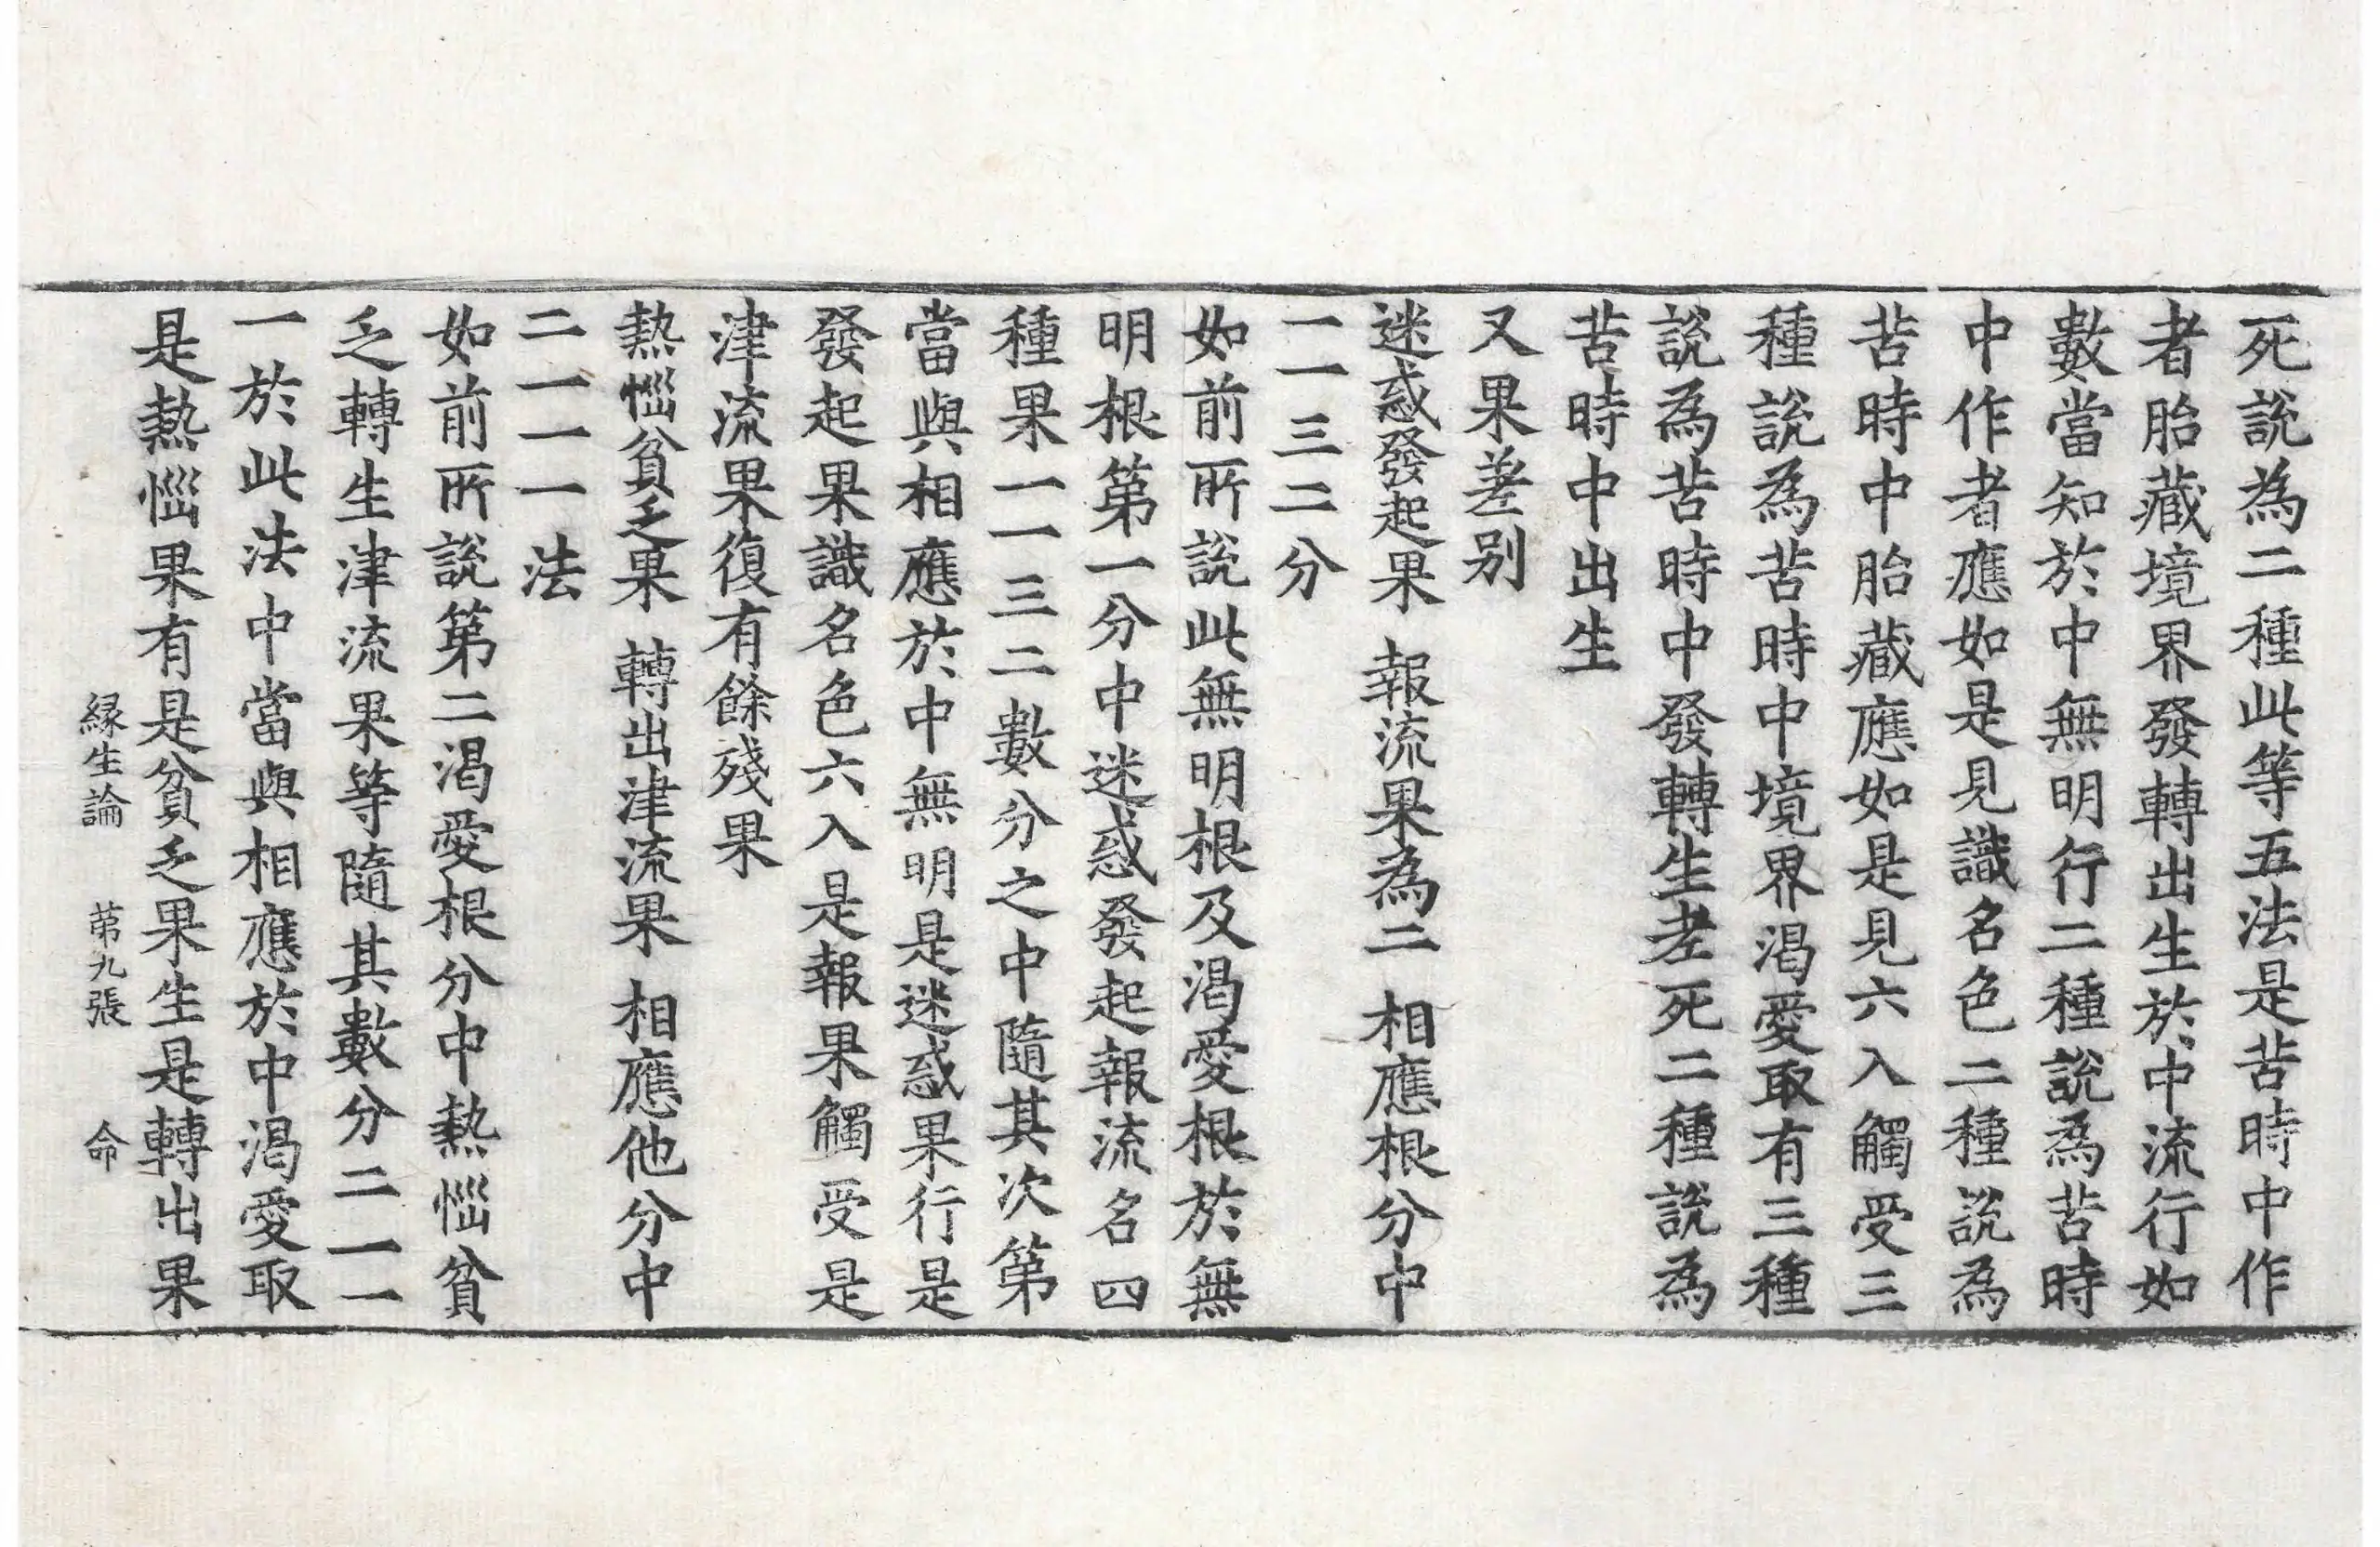 死說為二種此等五法是苦時中作
者胎藏境界發轉出生於中流行如
數當知於中無明行二種說為苦時
中作者應如是見識名色二種說為
苦時中胎藏應如是見六入觸受三
種說為苦時中境界渴愛取有三種
說為苦時中發轉生老死二種說為
苦時中出生
又果差別
迷惑發起果 報流果為二 相應根分中
一一三二分
如前所說此無明根及渴愛根於無
明根第一分中迷惑發起報流名四
種果一一三二數分之中隨其次第
當與相應於中無明是迷惑果行是
發起果識名色六入是報果觸受是
津流果復有餘殘果
熱惱貧乏果 轉出津流果 相應他分中
二一一一法
如前所說第二渴愛根分中熱惱貧
乏轉生津流果等隨其數分二一一
一於此法中當與相應於中渴愛取
是熱惱果有是貧乏果生是轉出果
緣生論 苐九張 命